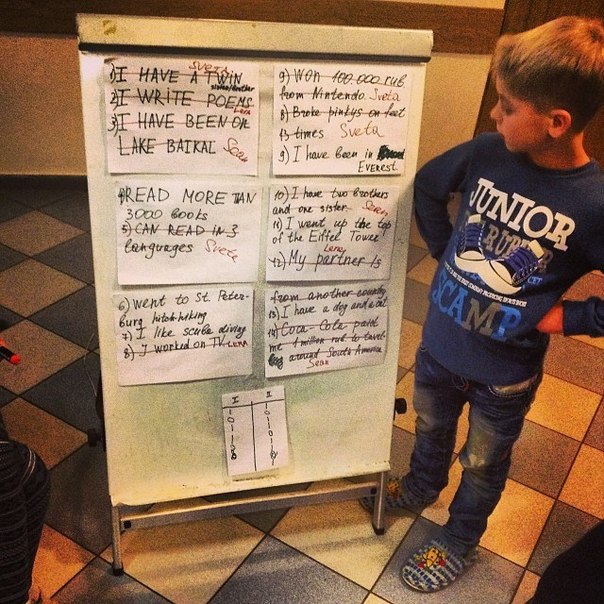 Sveta
1) I HAVE A TWIN
sister/brother
2) I WRITE POEMS
Lena
3) I HAVE BEEN ON
LAKE BAIKAL Sean
4) READ MORE TAN
3000 books
5) CAN READ IN 3
languages Sveta
6) WENT to St. Peter-
burg hitchhiking
7) I like scuba diving
8) I worked on TV Lena
9) Won 100.000 rub.
from Nintendo Sveta
8) Broke pinkys on feet
13 times Sveta
9) I have been in
Everest
10) I have two brothers
and one sister Sean
11) I went up the top
of the Eiffel Tower
Lena
12) My partner is
from another country
13) I have a dog and a cat
14) Coca-Cola paid
me 1 million rub to travel
around South America
Sean
I II
JUNIOR
RUBBER
SCAMP